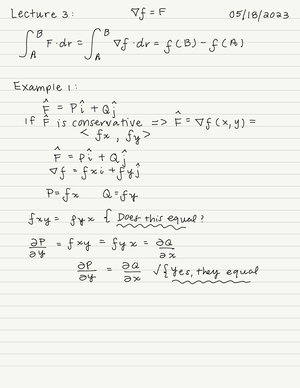 Lecture 3: ∇f = F 05/18/2023
∫_A^B F·dr = ∫_A^B ∇f·dr = f(B) - f(A)
Example 1:
F̂ = Pî + Qĵ
If F̂ is conservative => F̂ = ∇f(x,y) =
< fx, fy >
F̂ = Pî + Qĵ
∇f = fxi + fyĵ
P = fx Q = fy
fxy = fyx { Does this equal?
∂P/∂y = fxy = fyx = ∂Q/∂x
∂P/∂y = ∂Q/∂x √{ Yes, they equal